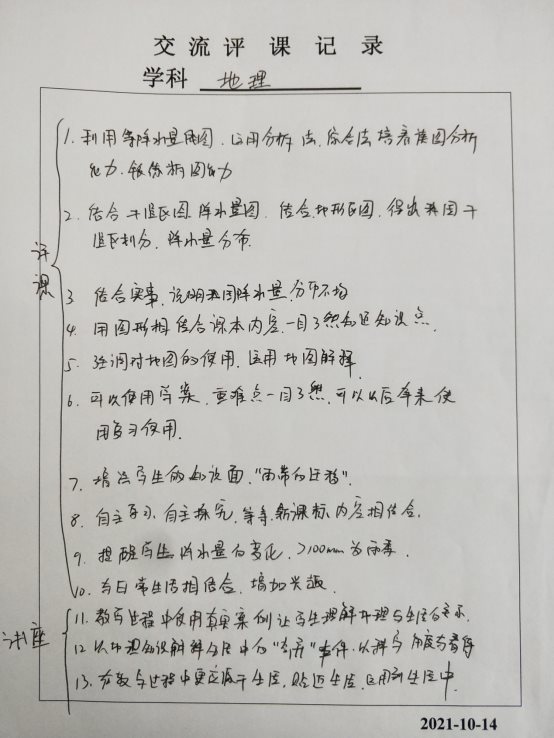 交流评课记录
学科 地理
评课
1. 利用等降水量线图，运用分析法，综合法培养读图分析
能力，锻炼析图能力
2. 结合干湿区图，降水量图，结合地形区图，得出我国干
湿区划分，降水量分布.
3 结合实事，说明我国降水量分布不均
4. 用图形相结合课本内容，一目了然知道知识点.
5. 强调对地图的使用，运用地图解释.
6. 可以使用学案，重难点一目了然，可以以后拿来使
用复习使用.
7. 增强学生的知识面，"雨带的迁移".
8. 自主学习，自主探究，等等，新课标，内容相结合.
9. 提醒学生降水量的变化，>100mm为雨季.
10. 与日常生活相结合，增加兴趣.
讲座
11. 教学过程中使用真实案例让学生理解地理与生活的关系.
12 以地理知识解释生活中的"奇异"事件，以科学角度去看待
13. 在教学过程中更应源于生活，贴近生活，运用到生活中.
2021-10-14